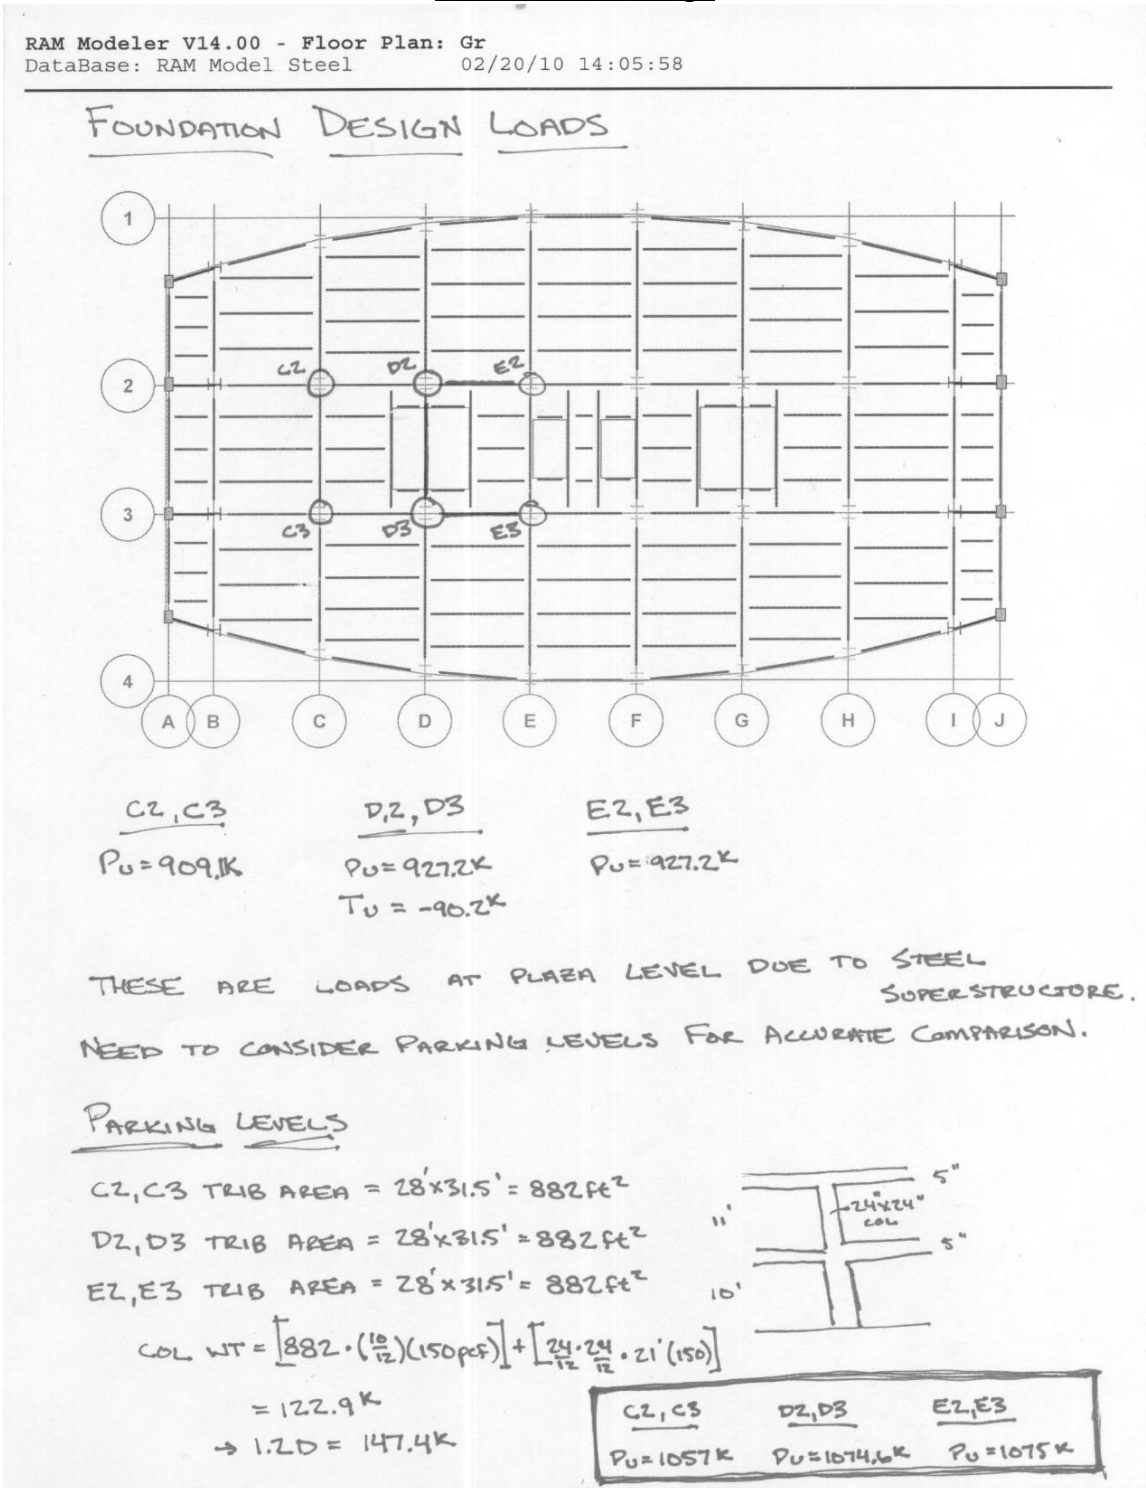 RAM Modeler V14.00 - Floor Plan: Gr
DataBase: RAM Model Steel 02/20/10 14:05:58
FOUNDATION DESIGN LOADS
1
C2 D2 E2
2
3
C3 D3 E3
4
A B C D E F G H I J
C2,C3 D,2,D3 E2,E3
Pu=909.1K Pu=927.2K Pu=927.2K
Tu = -90.2K
THESE ARE LOADS AT PLAZA LEVEL DUE TO STEEL
SUPERSTRUCTURE.
NEED TO CONSIDER PARKING LEVELS FOR ACCURATE COMPARISON.
PARKING LEVELS
C2,C3 TRIB AREA = 28'x31.5' = 882ft²
D2,D3 TRIB AREA = 28'x31.5' = 882ft²
E2,E3 TRIB AREA = 28'x31.5' = 882ft²
5"
11' 24"x24"
COL
5"
10'
COL WT = [882·(10/12)(150pcf)]+[24/12·24/12·21'(150)]
= 122.9K
→ 1.2D = 147.4K
C2,C3 D2,D3 E2,E3
Pu=1057K Pu=1074.6K Pu=1075K